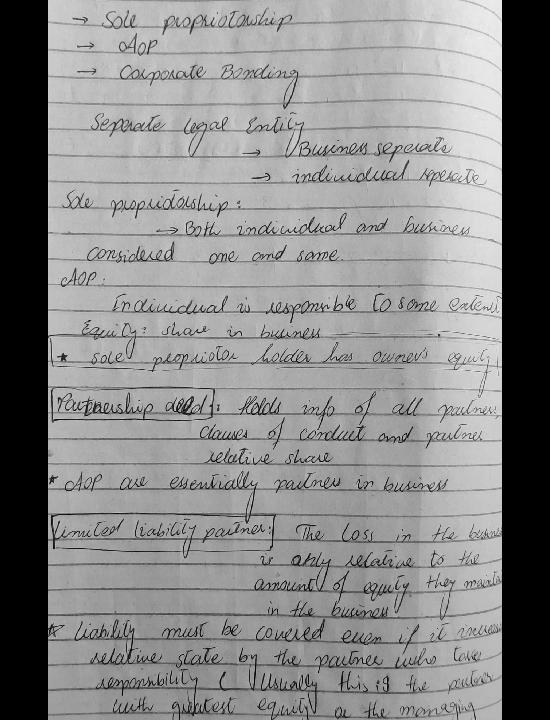 → Sole propriotorship
→ AOP
→ Corporate Bonding
Seperate legal Entity
→ Business seperate
→ individual seperate
Sole propriotorship :
→ Both individual and business
considered one and same.
AOP:
Individual is responsible to some extent
Equity: share in business
* sole proprietor holder has owners equity
Partnership deed : Holds info of all partners,
clauses of conduct and partner
relative share
* AOP are essentially partners in business
Limited liability partner: The loss in the business
is only relative to the
amount of equity they
in the business
* Liability must be covered even if it
relative state by the partner who takes
responsibility ( Usually this is the partner
with greatest equity or the managing